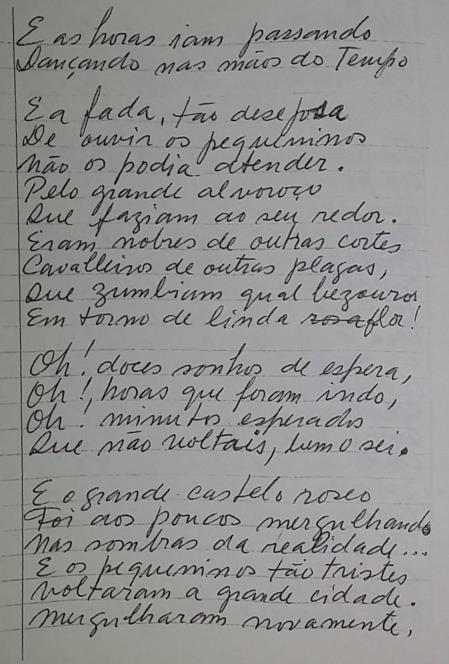 E as horas iam passando
Dançando nas mãos do Tempo
E a fada, tão desejosa
De ouvir os pequeninos
Não os podia atender.
Pelo grande alvoroço
Que faziam ao seu redor.
Eram nobres de outras cortes
Cavalleiros de outras plagas,
Que zumbiam qual bezouros
Em torno de linda rosa flor!
Oh! doces sonhos de espera,
Oh!, horas que foram indo,
Oh! minutos esperados
Que não voltais, bem o sei.
E o grande castelo roseo
Foi aos poucos mergulhando
Nas sombras da realidade...
E os pequeninos tão tristes
Voltaram a grande cidade.
Mergulharam novamente,